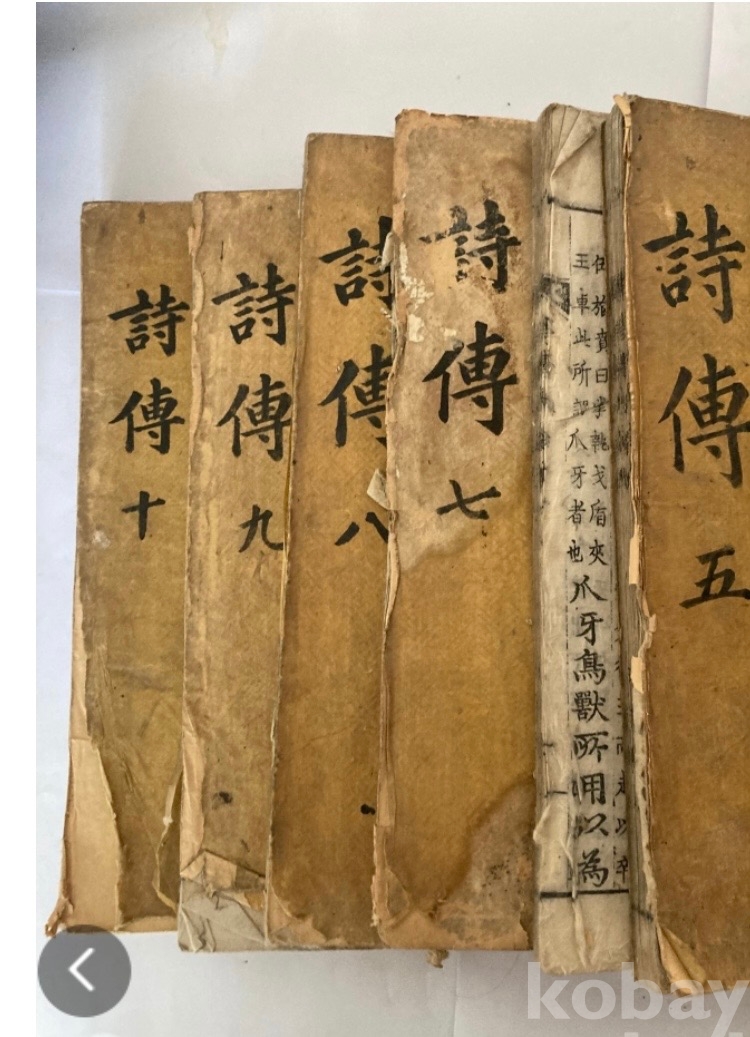 詩傳 五
旅賁曰掌執戈盾夾
王車此所謂爪牙者也
爪牙鳥獸所用以為
詩傳 七
詩傳 八
詩傳 九
詩傳 十
kobay